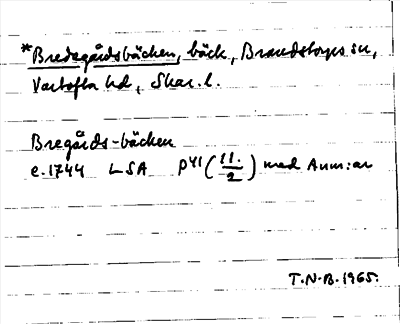 *Bredegårdsbäcken, bäck, Brandstorps sn,
Vartofta hd, Skar. l.
Bregårds-bäcken
e. 1744 LSA P41 (11:/2) med Anm:ar
T.N.B. 1965.